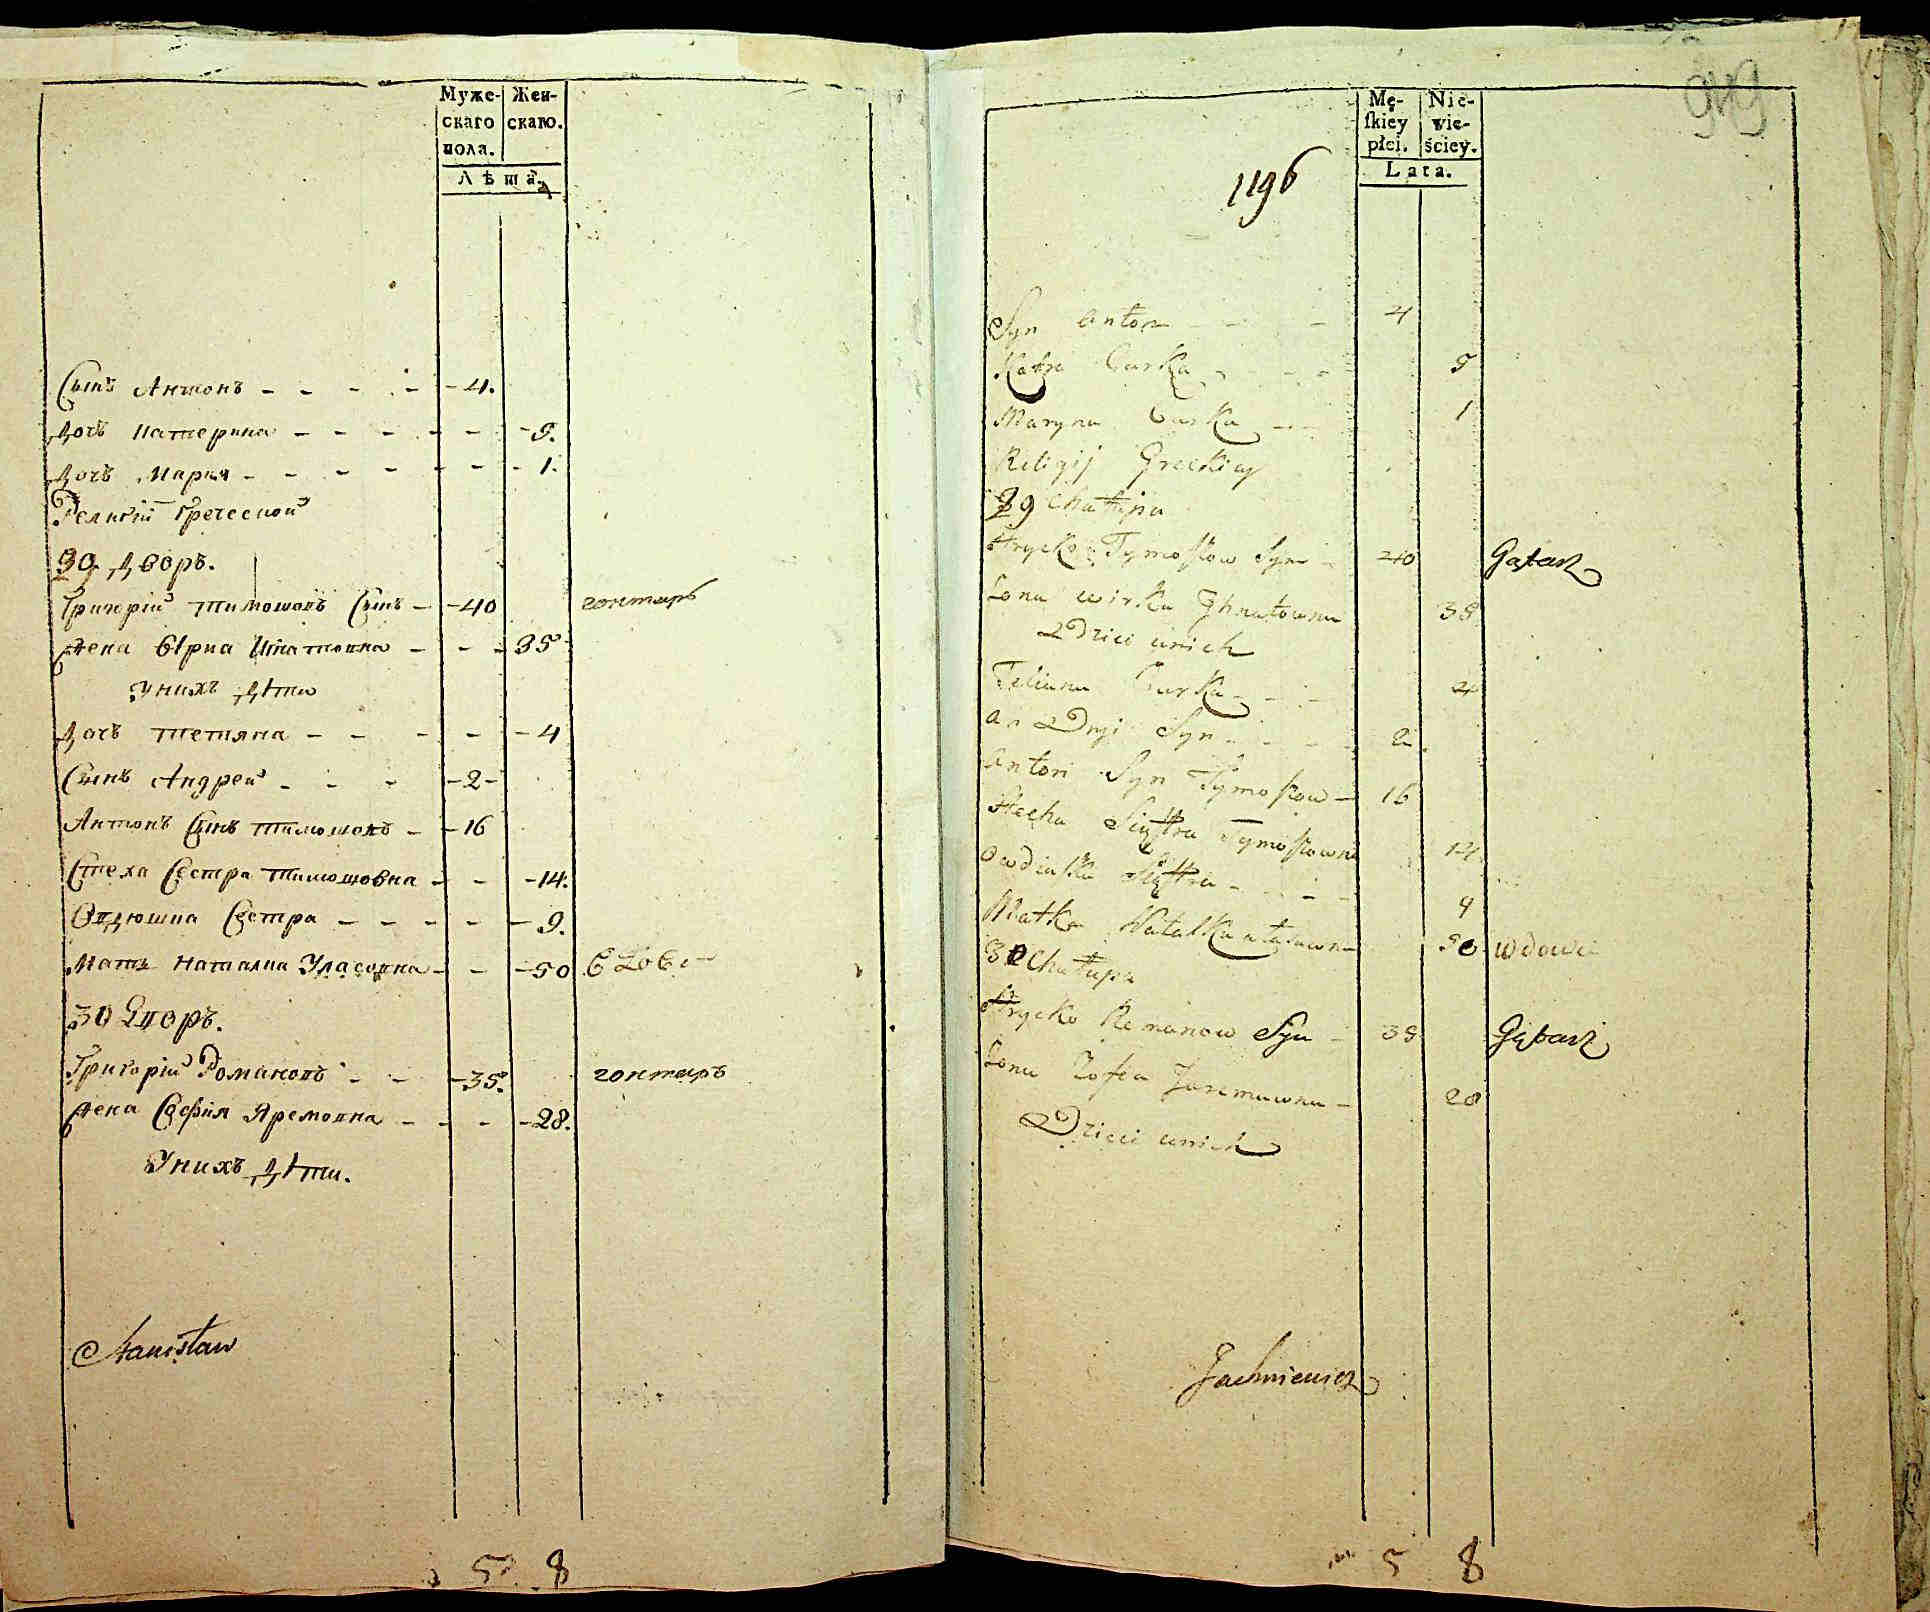 Муже- Жен-
скаго скаго.
пола.
Лѣта.
Сынъ Антонъ - - - - - 4.
Дочь Катерина - - - - - - 5.
Дочь Мария - - - - - - - 1.
Религїй Греческой
29 Дворъ.
Григорїй Тимошовъ Сынъ - - 40 гонтаръ
Жена Вірка Игнатовна - - - 35
У нихъ Дѣти
Дочь Тетяна - - - - - 4
Сынъ Андрей - - - - 2 -
Антонъ Сынъ Тимошовъ - - 16
Стеха Сестра Тимошовна - - - 14.
Овдюшка Сестра - - - - - - 9.
Мать Наталка Уласовна - - - 50
30 Дворъ.
Григорїй Романовъ - - - 35. гонтаръ
Жена София Яремовна - - - - 28.
У нихъ Дѣти.
Stanisław
5 8
949
Mę- Nie-
ſkiey wie-
płci. ściey.
Lata.
1196
Syn Anton - - - 4
Katra Curka - - - - 5
Maryna Curka - - 1
Religij Greckiey
29 Chałupa
Hrycko Tymoszow Syn - 40
Zona Wirka Ihnatowna 38
Dzieci u nich
Teliana Curka - - - 4
Andryi Syn - - - - 2
Anton Syn Tymoszow - 16
Stecha Siostra Tymoszowna 14
Owdiuszka Siostra - - - - 9
Matka Natalka 50 wdowa
30 Chałupa
Hrycko Romanow Syn - 38
Zona Zofia Jaremowna - 28
Dzieci u nich
Jachniewicz
5 8